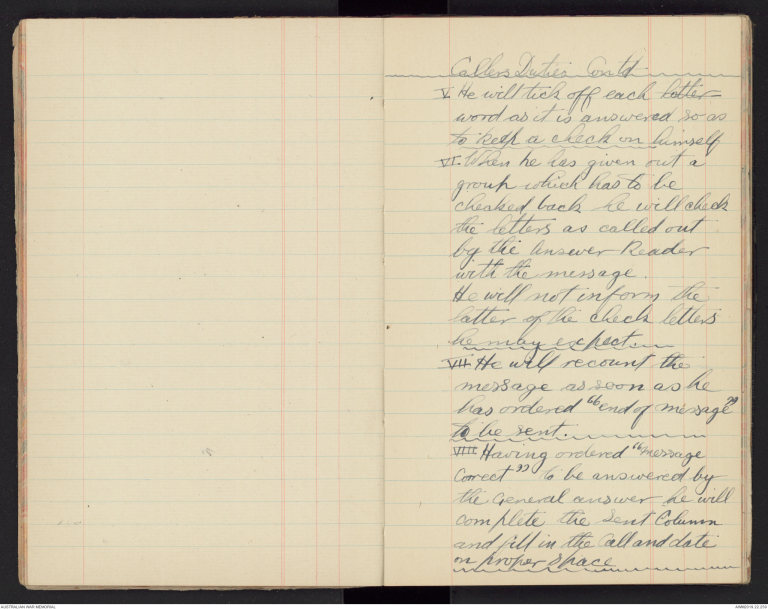 Callers Duties Contd
V. He will tick off each letter
word as it is answered so as
to keep a check on himself
VI. When he has given out a
group which has to be
cheaked back he will check
the letters as called out
by the answer Reader
with the message.
He will not inform the
latter of the check letters
he may expect.
VII He will recount the
message as soon as he
has ordered "end of message"
to be sent.
VIII Having ordered "message
Correct" to be answered by
the General answer he will
complete the Sent Column
and fill in the Call and date
on proper space
AUSTRALIAN WAR MEMORIAL